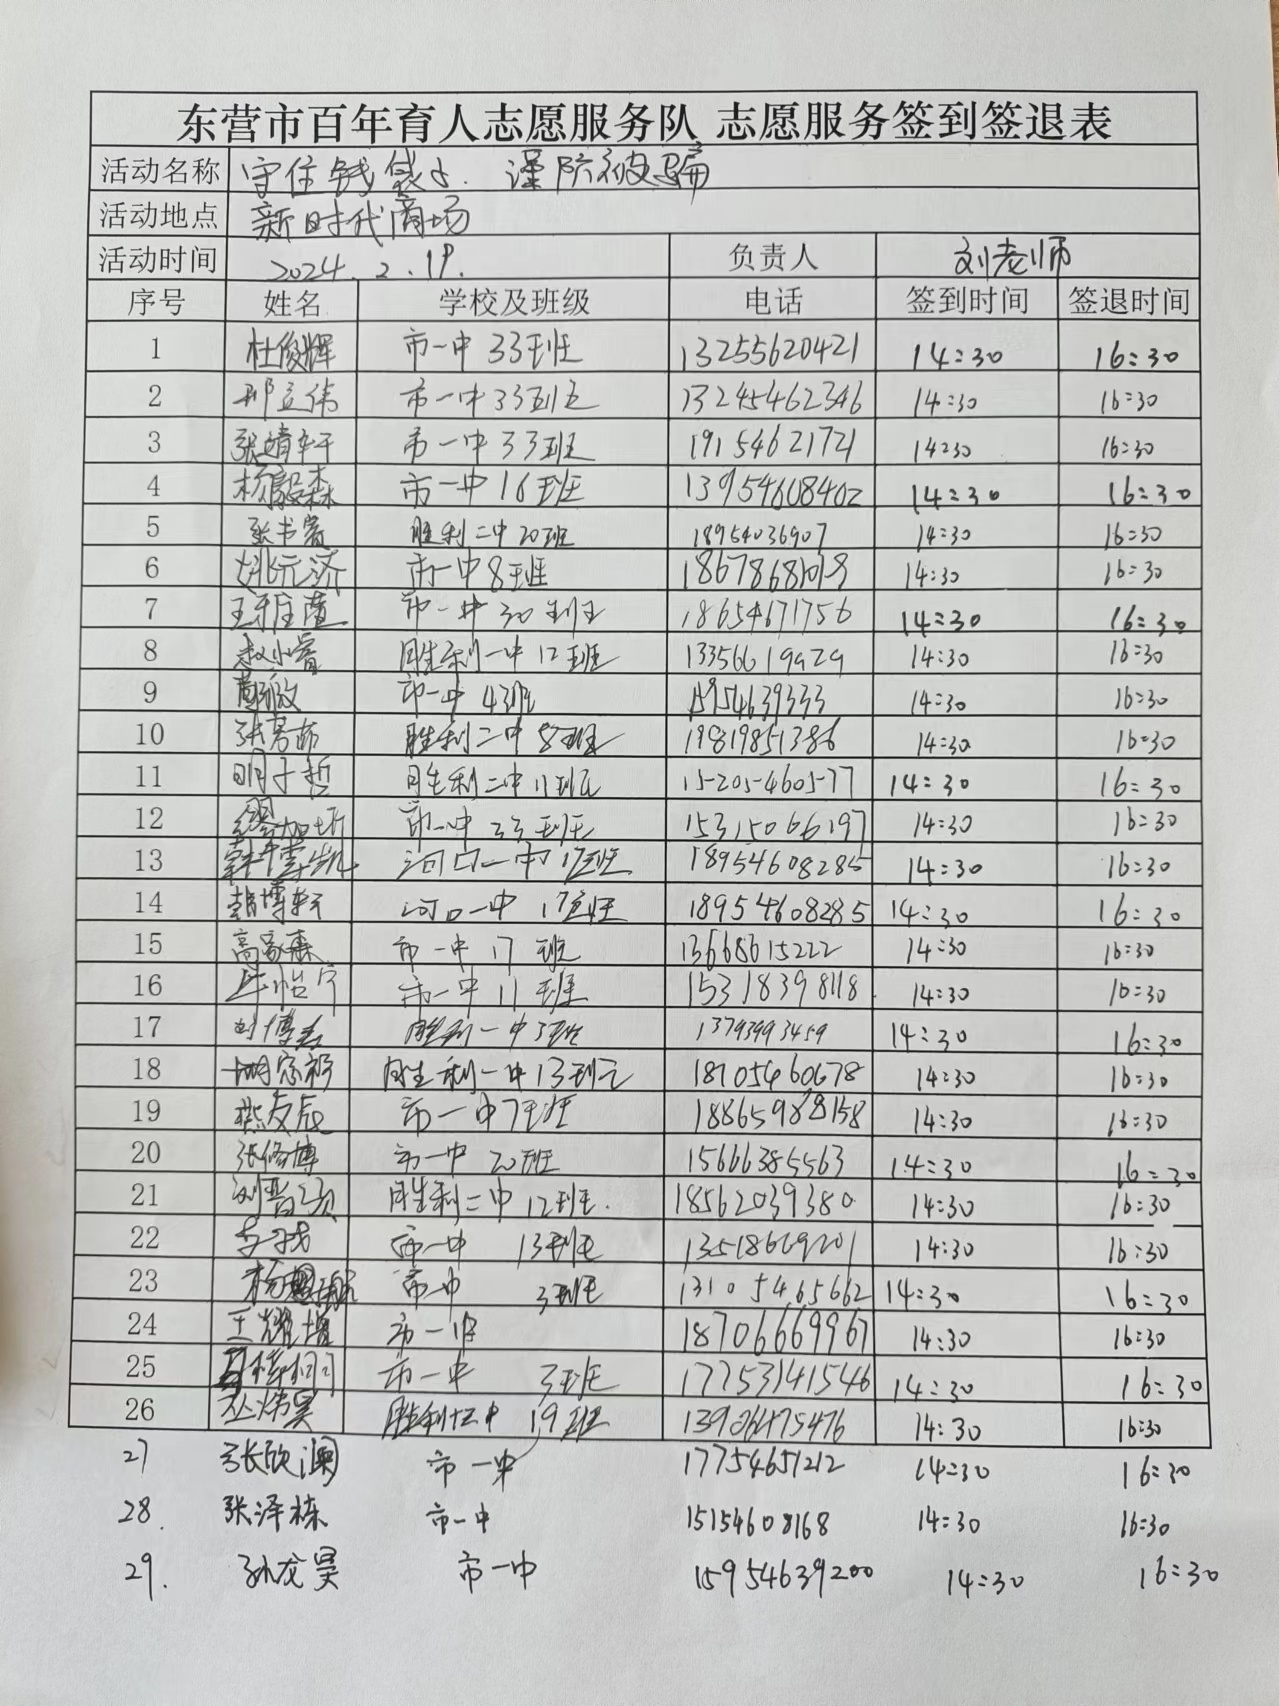 东营市百年育人志愿服务队 志愿服务签到签退表
活动名称 守住钱袋子. 谨防被骗
活动地点 新时代商场
活动时间 2024.2.19. 负责人 刘老师
序号 姓名 学校及班级 电话 签到时间 签退时间
1 杜俊辉 市一中 33班 13255620421 14:30 16:30
2 邢立伟 市一中33班 13245462346 14:30 16:30
3 张靖轩 市一中 33班 19154621721 14:30 16:30
4 杨毅森 市一中 16班 13954608402 14:30 16:30
5 张书睿 胜利二中 20班 18954036907 14:30 16:30
6 姚元济 市一中 8班 14:30 16:30
7 王 市一中 30班 18654671756 14:30 16:30
8 赵小睿 胜利一中 12班 13356619929 14:30 16:30
9 市一中 43班 15954639333 14:30 16:30
10 张 胜利二中 8班 19819851386 14:30 16:30
11 明子哲 胜利二中 11班 15205460577 14:30 16:30
12 市一中 33班 15315066197 14:30 16:30
13 河口一中 17班 18954608285 14:30 16:30
14 韩博轩 河口一中 17班 18954608285 14:30 16:30
15 高家森 市一中 17 班 13668615222 14:30 16:30
16 牟怡宁 市一中 11 班 15318398118 14:30 16:30
17 刘博 胜利一中 3班 13793993459 14:30 16:30
18 胡家祁 胜利一中 13班 18705460678 14:30 16:30
19 燕友辰 市一中 7班 14:30 16:30
20 张修博 市一中 20班 15666385563 14:30 16:30
21 刘晋硕 胜利二中 12班. 18562039380 14:30 16:30
22 市一中 13班 13518669201 14:30 16:30
23 杨 市一中 3班 13105465662 14:30 16:30
24 王耀增 市一中 18706669967 14:30 16:30
25 市一中 3班 17753141546 14:30 16:30
26 丛炜昊 胜利 19班 13926475476 14:30 16:30
27 张欣澜 市一中 17754651212 14:30 16:30
28. 张泽栋 市一中 15154608168 14:30 16:30
29. 孙龙昊 市一中 15954639200 14:30 16:30